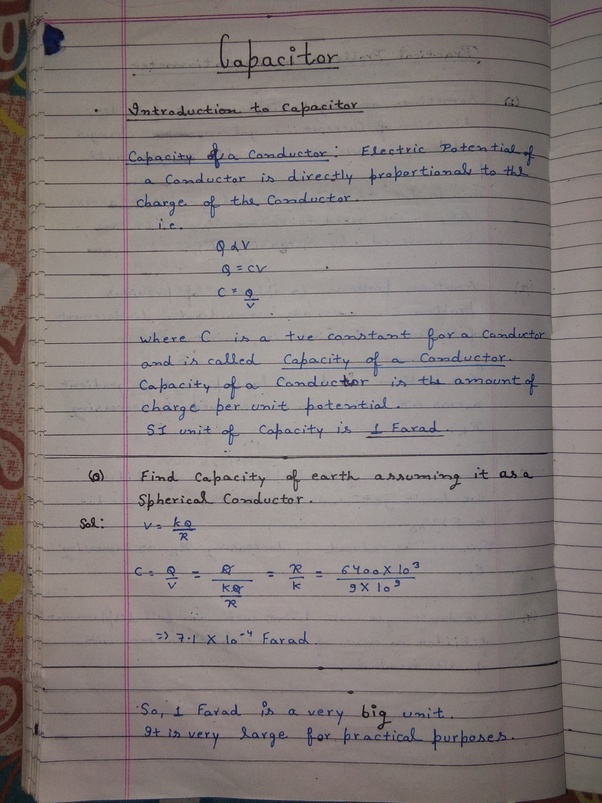 Capacitor
Introduction to Capacitor
Capacity of a Conductor: Electric Potential of
a Conductor is directly proportional to the
charge of the Conductor.
i.e.
Q α V
Q = CV
C = Q/V
where C is a +ve constant for a Conductor
and is called Capacity of a Conductor.
Capacity of a Conductor is the amount of
charge per unit potential.
SI unit of Capacity is 1 Farad.
(Q) Find Capacity of earth assuming it as a
Spherical Conductor.
Sol: V = kQ/R
C = Q/V = Q/(kQ/R) = R/k = 6400 X 10³/9 X 10⁹
=> 7.1 X 10⁻⁴ Farad
So, 1 Farad is a very big unit.
It is very large for practical purposes.